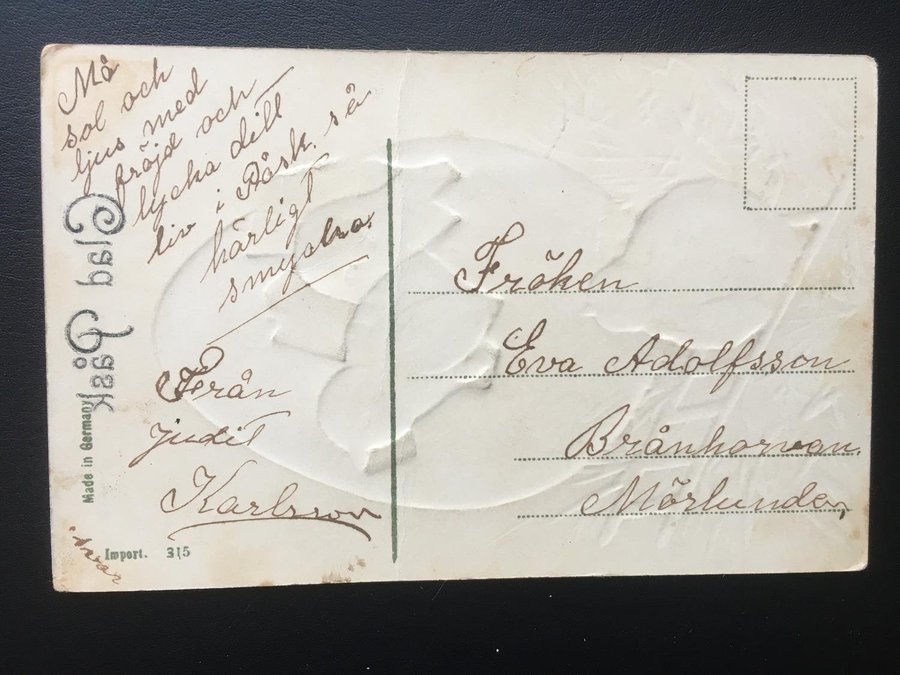 Må
sol och
ljus med
fröjd och
lycka ditt
liv i Påsk. så
härligt
smycka.
Från
Judit
Karlsson
Glad Påsk
Made in Germany
Import. 315
Fröken
Eva Adolfsson
Brånkorvan.
Mörlunda,